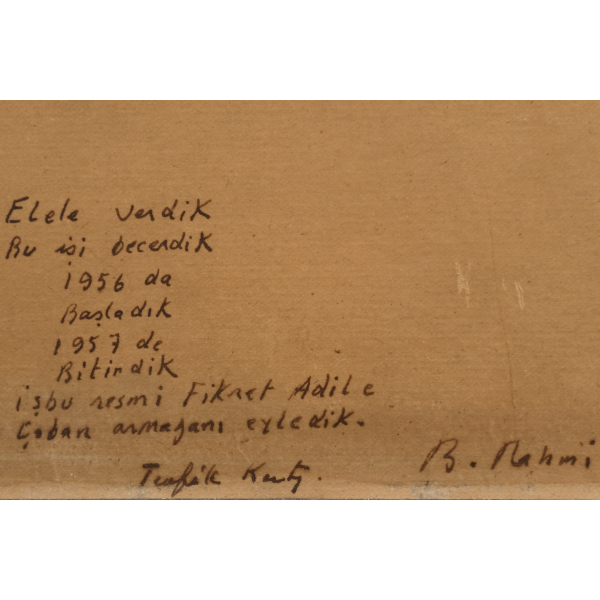 Elele verdik
Bu işi becerdik
1956 da
Başladık
1957 de
Bitirdik
işbu resmi Fikret Adile
Çoban armağanı eyledik.
B. Rahmi
Teofik